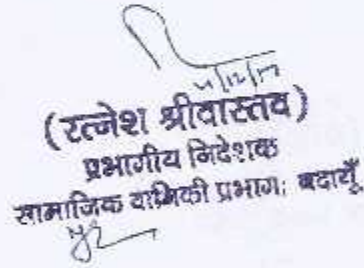 4/12/17
(रत्नेश श्रीवास्तव)
प्रभागीय निदेशक
सामाजिक वानिकी प्रभाग; बदायूँ